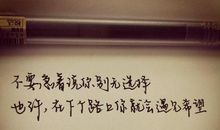 不要急着说你别无选择
也许,在下个路口你就会遇见希望